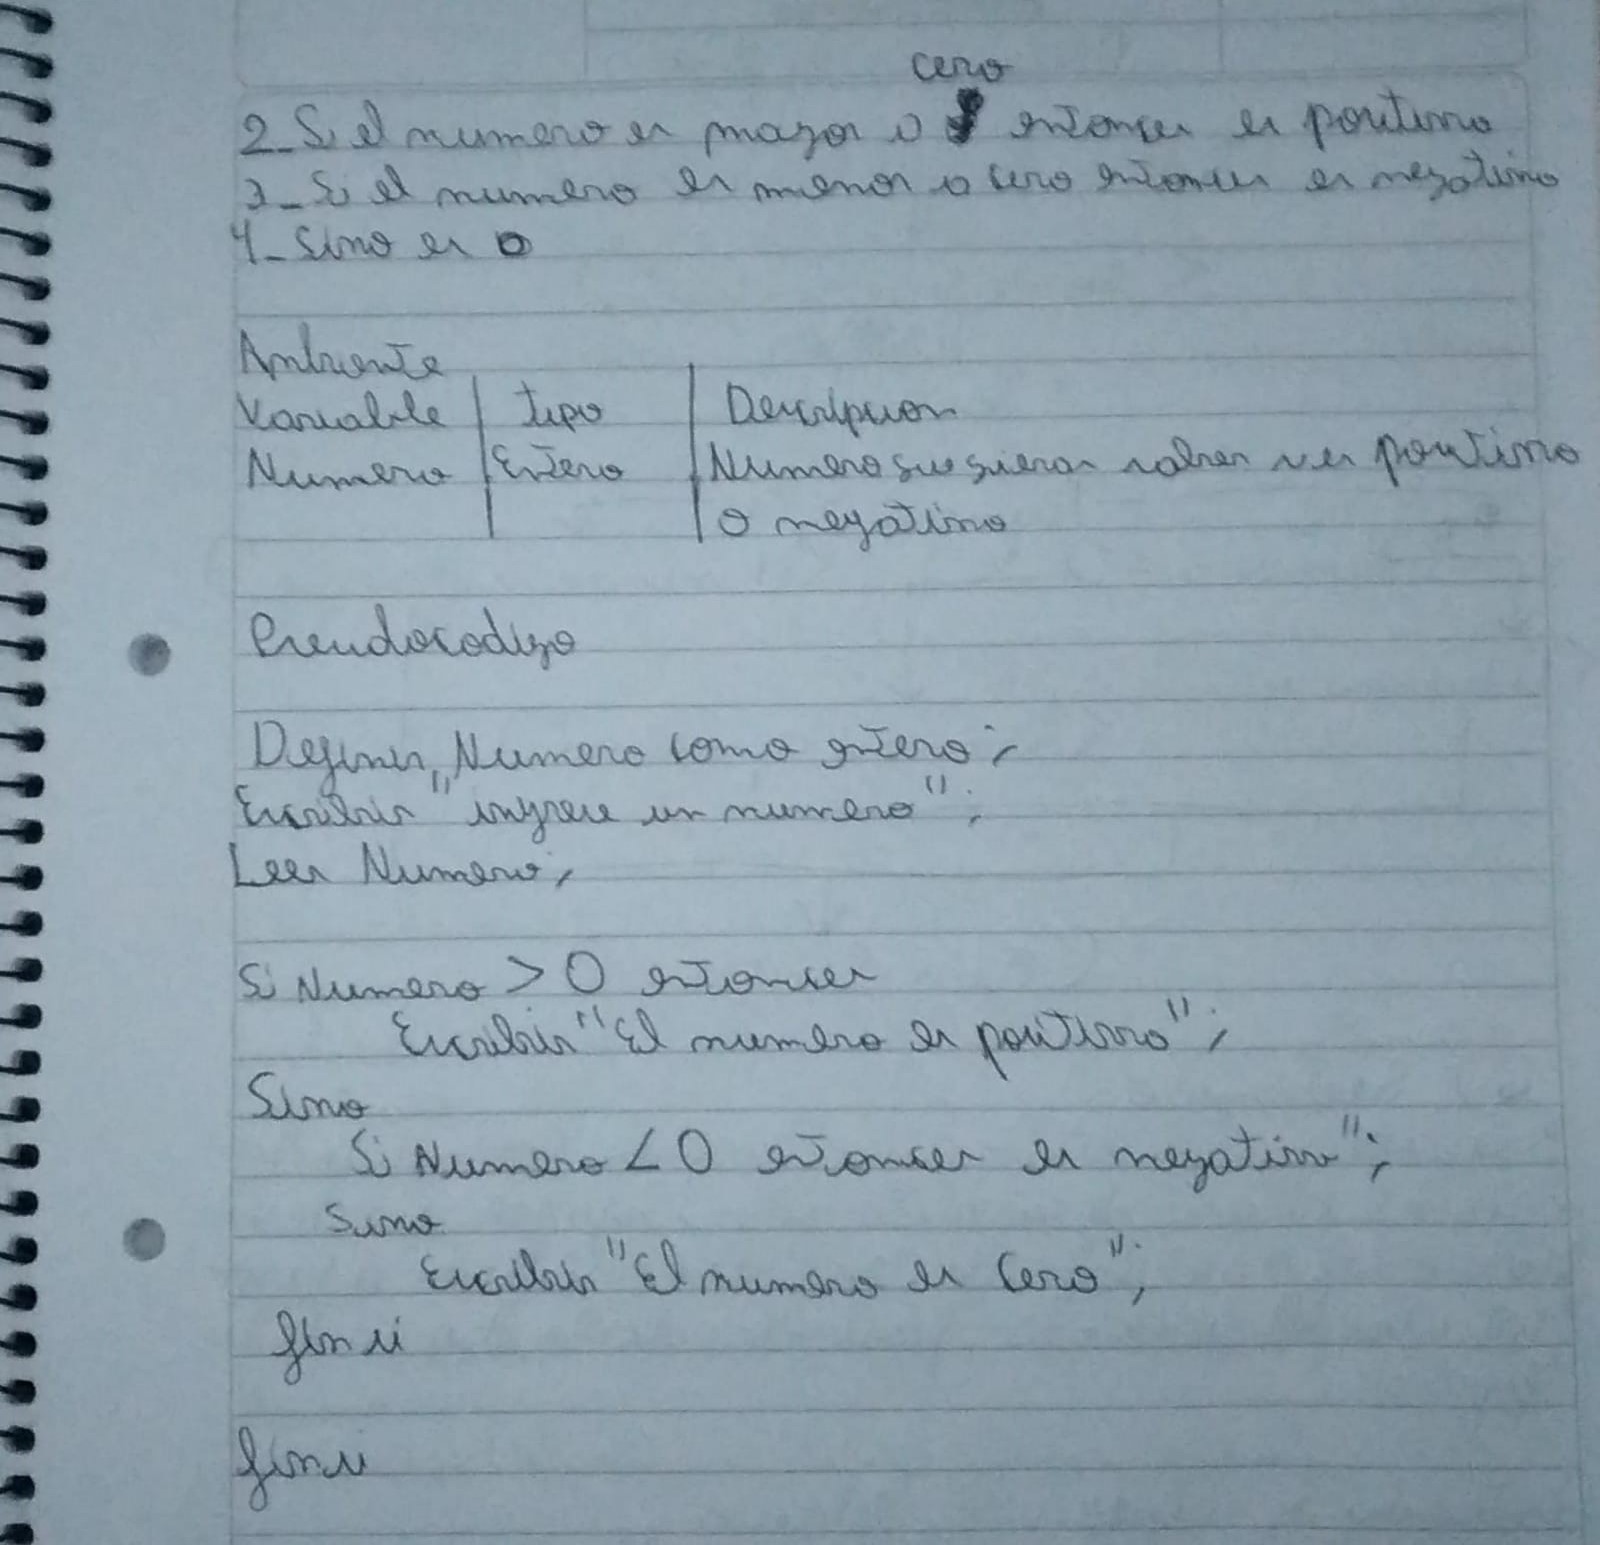 cero
2_Si el numero es mayor a entonses es positivo
3_Si el numero es menor a cero entonses es negativo
4_Sino es 0
Ambiente
Variable | tipo | Descripcion
Numero | Entero | Numero que quieran saber si es positivo
o negativo
Pseudocodigo
Definir Numero como entero;
Escribir "ingrese un numero";
Leer Numero;
Si Numero > 0 entonses
Escribir "El numero es positivo";
Sino
Si Numero < 0 entonses es negativo";
Sino
Escribir "El numero es Cero";
finsi
finsi